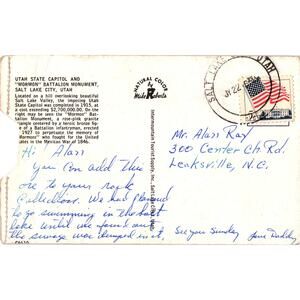 UTAH STATE CAPITOL AND
"MORMON" BATTALION MONUMENT,
SALT LAKE CITY, UTAH
Located on a hill overlooking beautiful
Salt Lake Valley, the imposing Utah
State Capitol was completed in 1915, at
a cost exceeding $2,700,000.00. On
the right may be seen the "Mormon" Bat-
talion Monument, a rose-pink granite
tongue centered by a heroic bronze fig-
ure of a Battalion infantryman, erected
1927 to perpetuate the memory of
"Mormons" who fought for the United
States in the Mexican War of 1846.
NATURAL COLOR
by
Mike Roberts
Intermountain Tourist Supply, Inc., Salt Lake City, Utah
SALT LAKE UTAH
Mr. Alan Ray
300 Center Ch Rd.
Leaksville, N.C.
Hi Alan
You can add this
one to your rock
collection. We had planned
to go swimming in the salt
lake until we found out
the sewage was dumped in it.
See you Sunday
Love Daddy